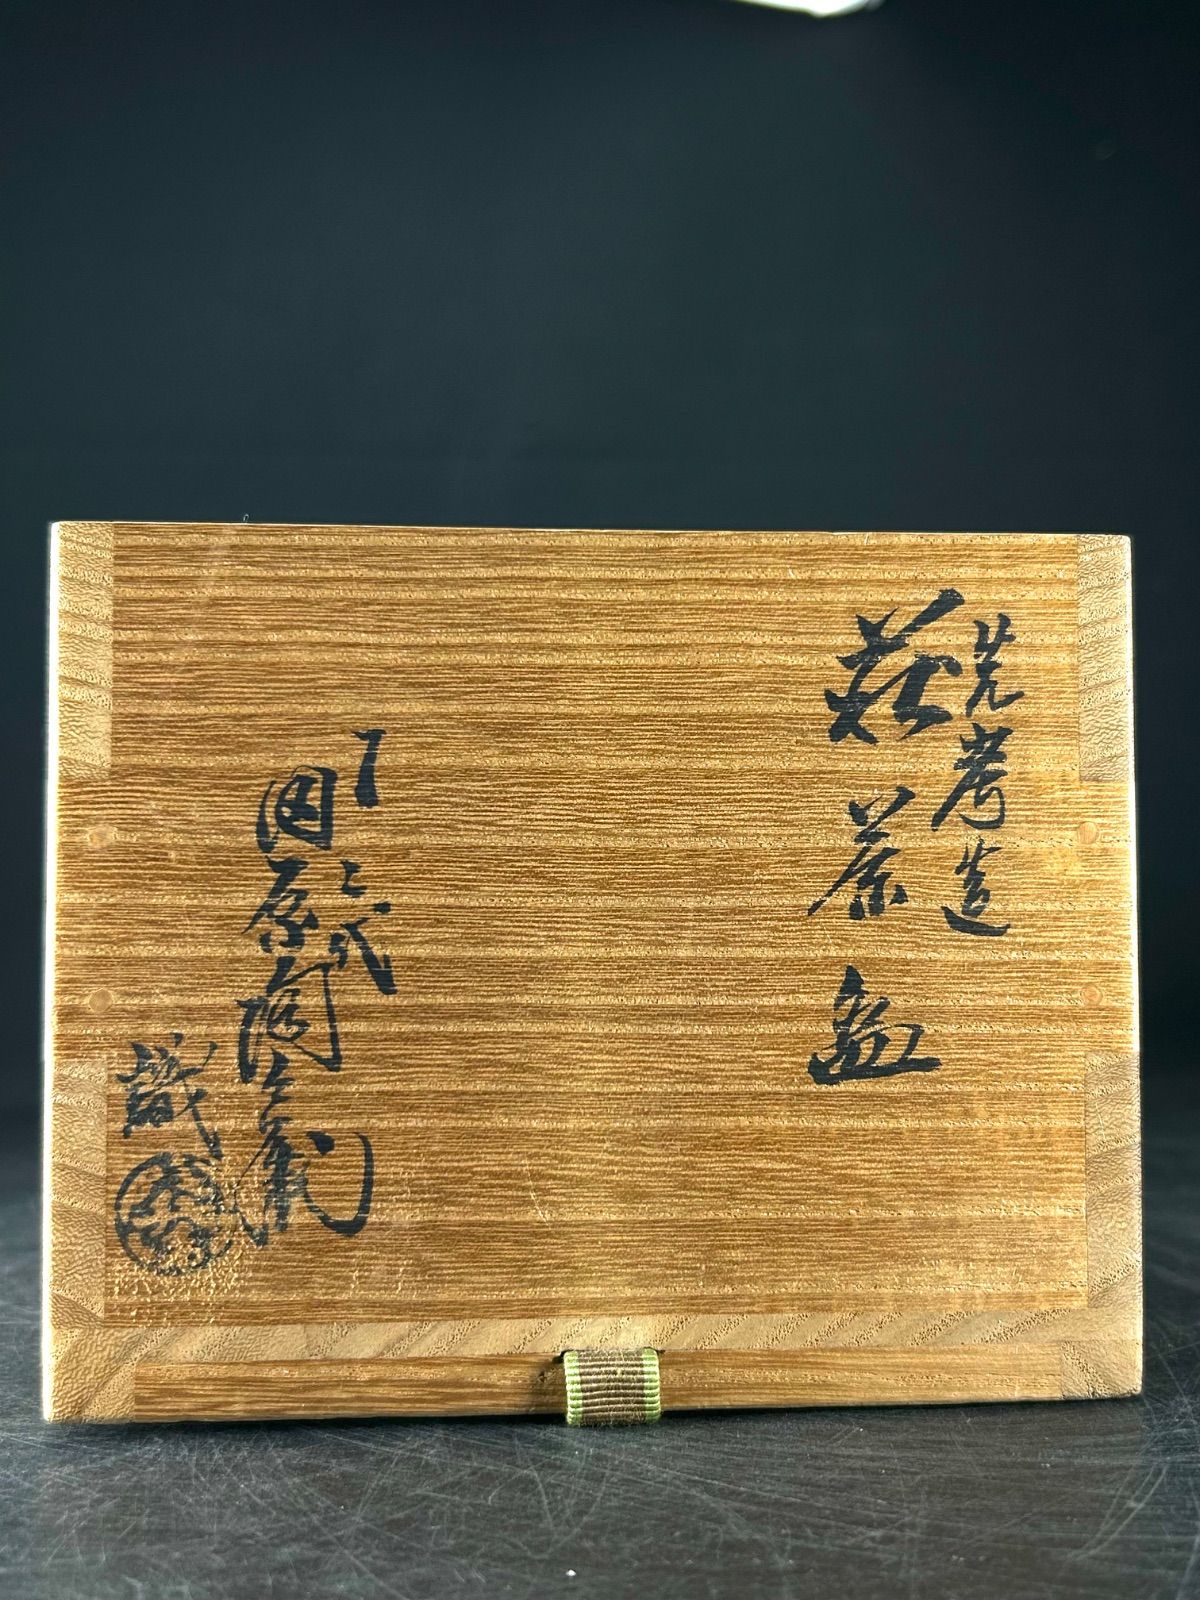 先考造
萩茶盌
十二代
田原陶兵衛
識